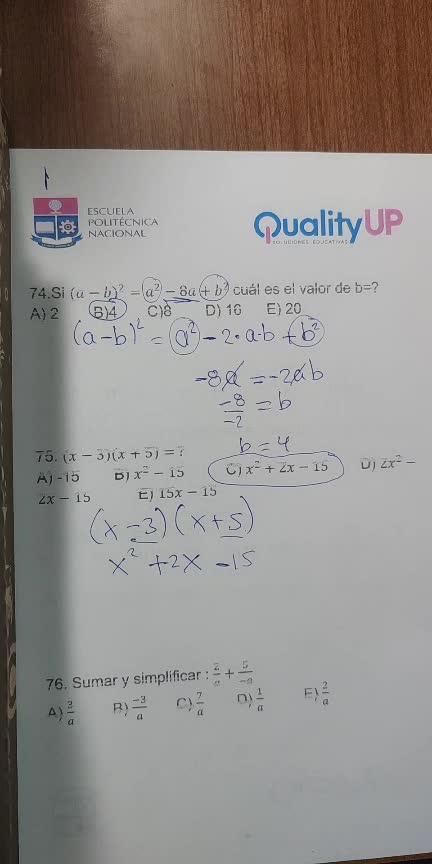 ESCUELA
POLITÉCNICA
NACIONAL
QualityUP
SOLUCIONES EDUCATIVAS
74.Si (a − b)² = a² − 8a + b² cuál es el valor de b=?
A) 2 B)4 C)8 D) 16 E) 20
(a-b)² = a² - 2·a·b + b²
-8a = -2ab
-8/-2 = b
b = 4
75. (x − 3)(x + 5) = ?
A) -15 B) x² − 15 C) x² + 2x − 15 D) 2x² −
2x − 15 E) 15x − 15
(x-3)(x+5)
x² +2x -15
76. Sumar y simplificar : 2/a + 5/-a
A) 3/a B) -3/a C) 7/a D) 1/a E) 2/a